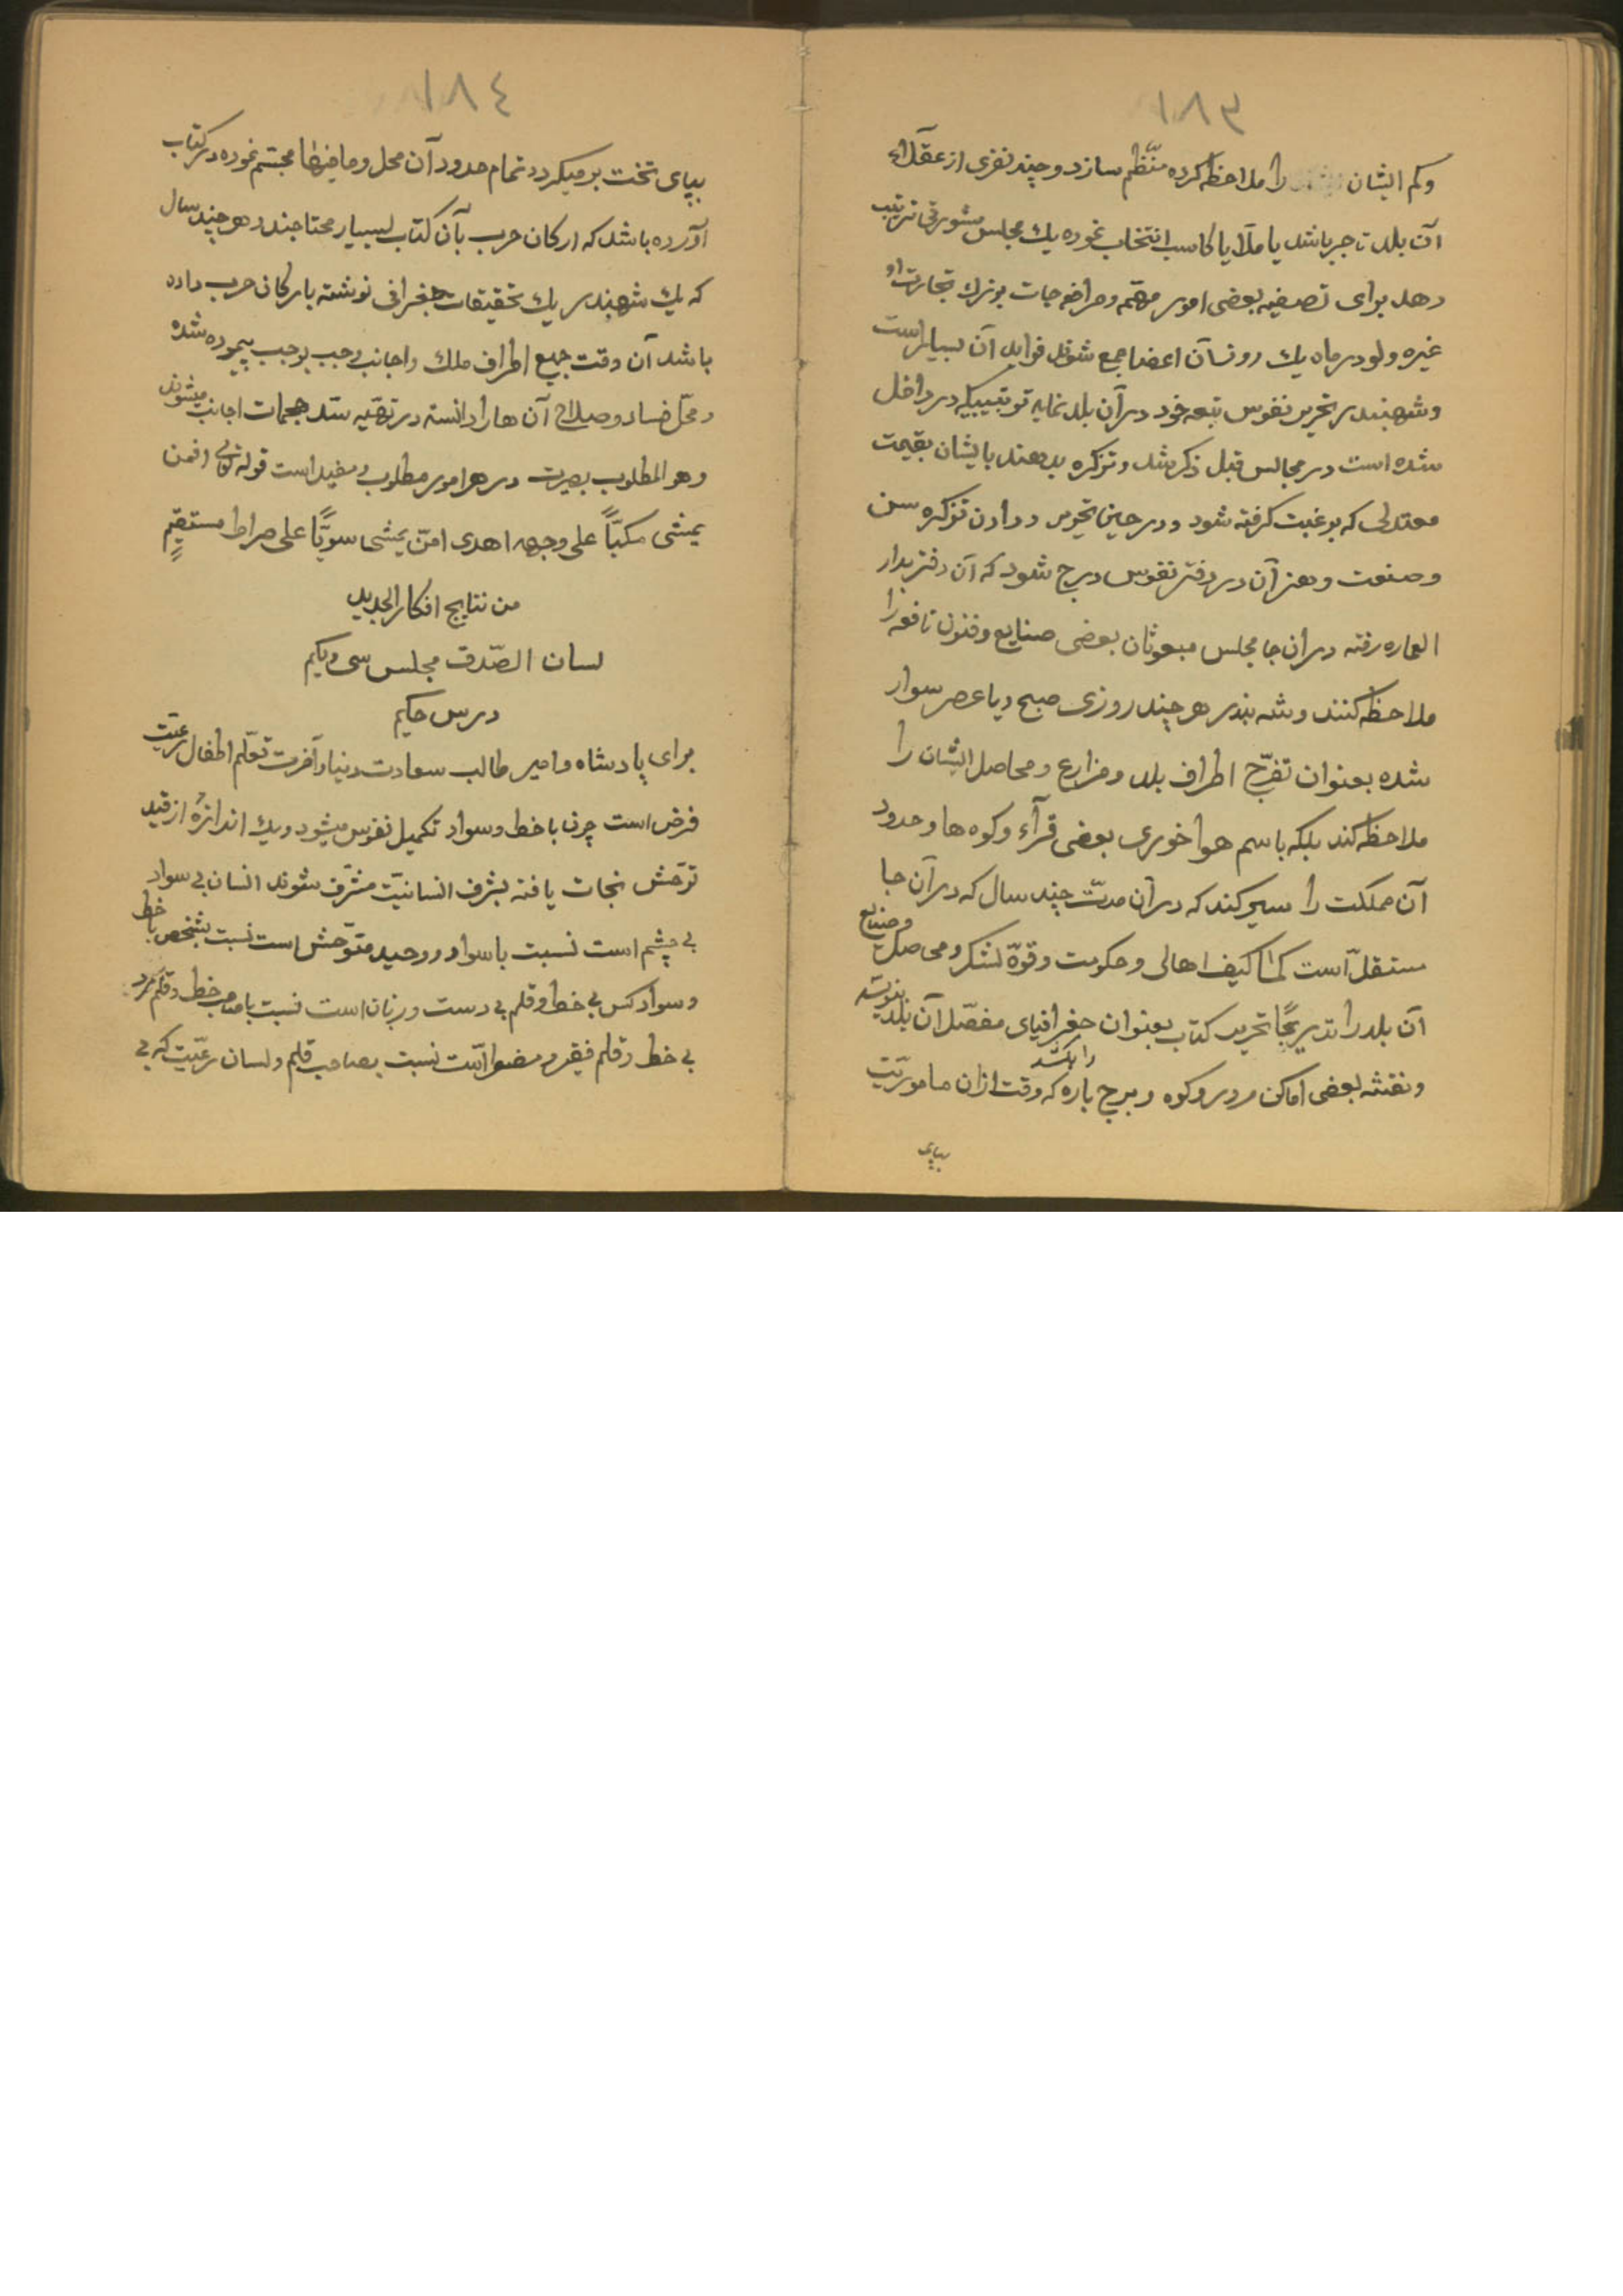 ١٨٣
وكم ايشان را ملاحظه كرده منتظم سازد و چند نفرى از عقلاى
آن بلد تاجر باشد يا ملا يا كاسب انتخاب نموده يك مجلس مشورتى ترتيب
دهد براى تصفيه بعضى امور مهمه ومرافعه جات بزرك تجارت او
غيره ولو در ماه يك روز آن اعضا جمع شوند فوايد آن بسيار است
وشهبندر تحرير نفوس تبعه خود در آن بلد نمايد بترتيبيكه در داخل
شده است در مجالس قبل ذكر شد وتزكره بدهند بايشان بقيمت
معتدلى كه برغبت كرفته شود ودر حين تحرير ودادن تزكره سن
وصنعت وهنر آن در دفتر نفوس درج شود كه آن دفتر بدار
العماره رفته در آن جا مجلس مبعوثان بعضى صنايع وفنون نافعه را
ملاحظه كنند وشه بندر هر چند روزى صبح ويا عصر سوار
شده بعنوان تفرّج اطراف بلد ومزارع ومحاصل ايشان را
ملاحظه كند بلكه باسم هوا خورى بعضى قرآء وكوه ها وحدود
آن مملكت را سير كند كه در آن مدّت چند سال كه در آن جا
مستقلّ است كمّاً كيف اهالى وحكومت وقوّه لشكر ومحاصل وصنايع
آن بلد را تدريجًا تحرير كتاب بعنوان جغرافياى مفصّل آن بلد بنويسد
ونقشه بعضى اماكن مرور وكوه وبرج باره را بكشد كه وقت ازان مأموريّت
بپاى
١٨٤
بپاى تخت برميكردد تمام حدود آن محل وما فيها مجسّم نموده در كتاب
آورده باشد كه اركان حرب بآن كتاب بسيار محتاجند وهر چند سال
كه يك شهبندر يك تحقيقات جغرافى نوشته باركان حرب داده
باشد آن وقت جميع اطراف ملك واجانب وجب بوجب پيموده شده
ومحلّ فساد وصلاح آن ها را دانسته در تهيّه سدّ هجمات اجانب ميشوند
وهو المطلوب بصيرت در هر امور مطلوب ومفيد است قوله تعالى افمن
يمشى مكبّاً على وجهه اهدى امّن يمشى سويًّا على صراط مستقيمٍ
من نتايج افكار الجديد
لسان الصّدق مجلس سى ويكم
درس حكيم
براى پادشاه وامير طالب سعادت دنيا وآخرت تعلّم اطفال رعيّت
فرض است چون با خط وسواد تكميل نفوس ميشود ويك اندازهٔ از قيد
توحّش نجات يافته بشرف انسانيّت مشرّف شوند انسان بى سواد
بى چشم است نسبت باسواد ووحيد متوحّش است نسبت بشخص با خط
وسواد كس بى خط وقلم بى دست وزبان است نسبت با صاحب خط وقلم مرد
بى خط وقلم فقير ومضطر است نسبت بصاحب قلم ولسان رعيّت كه بى